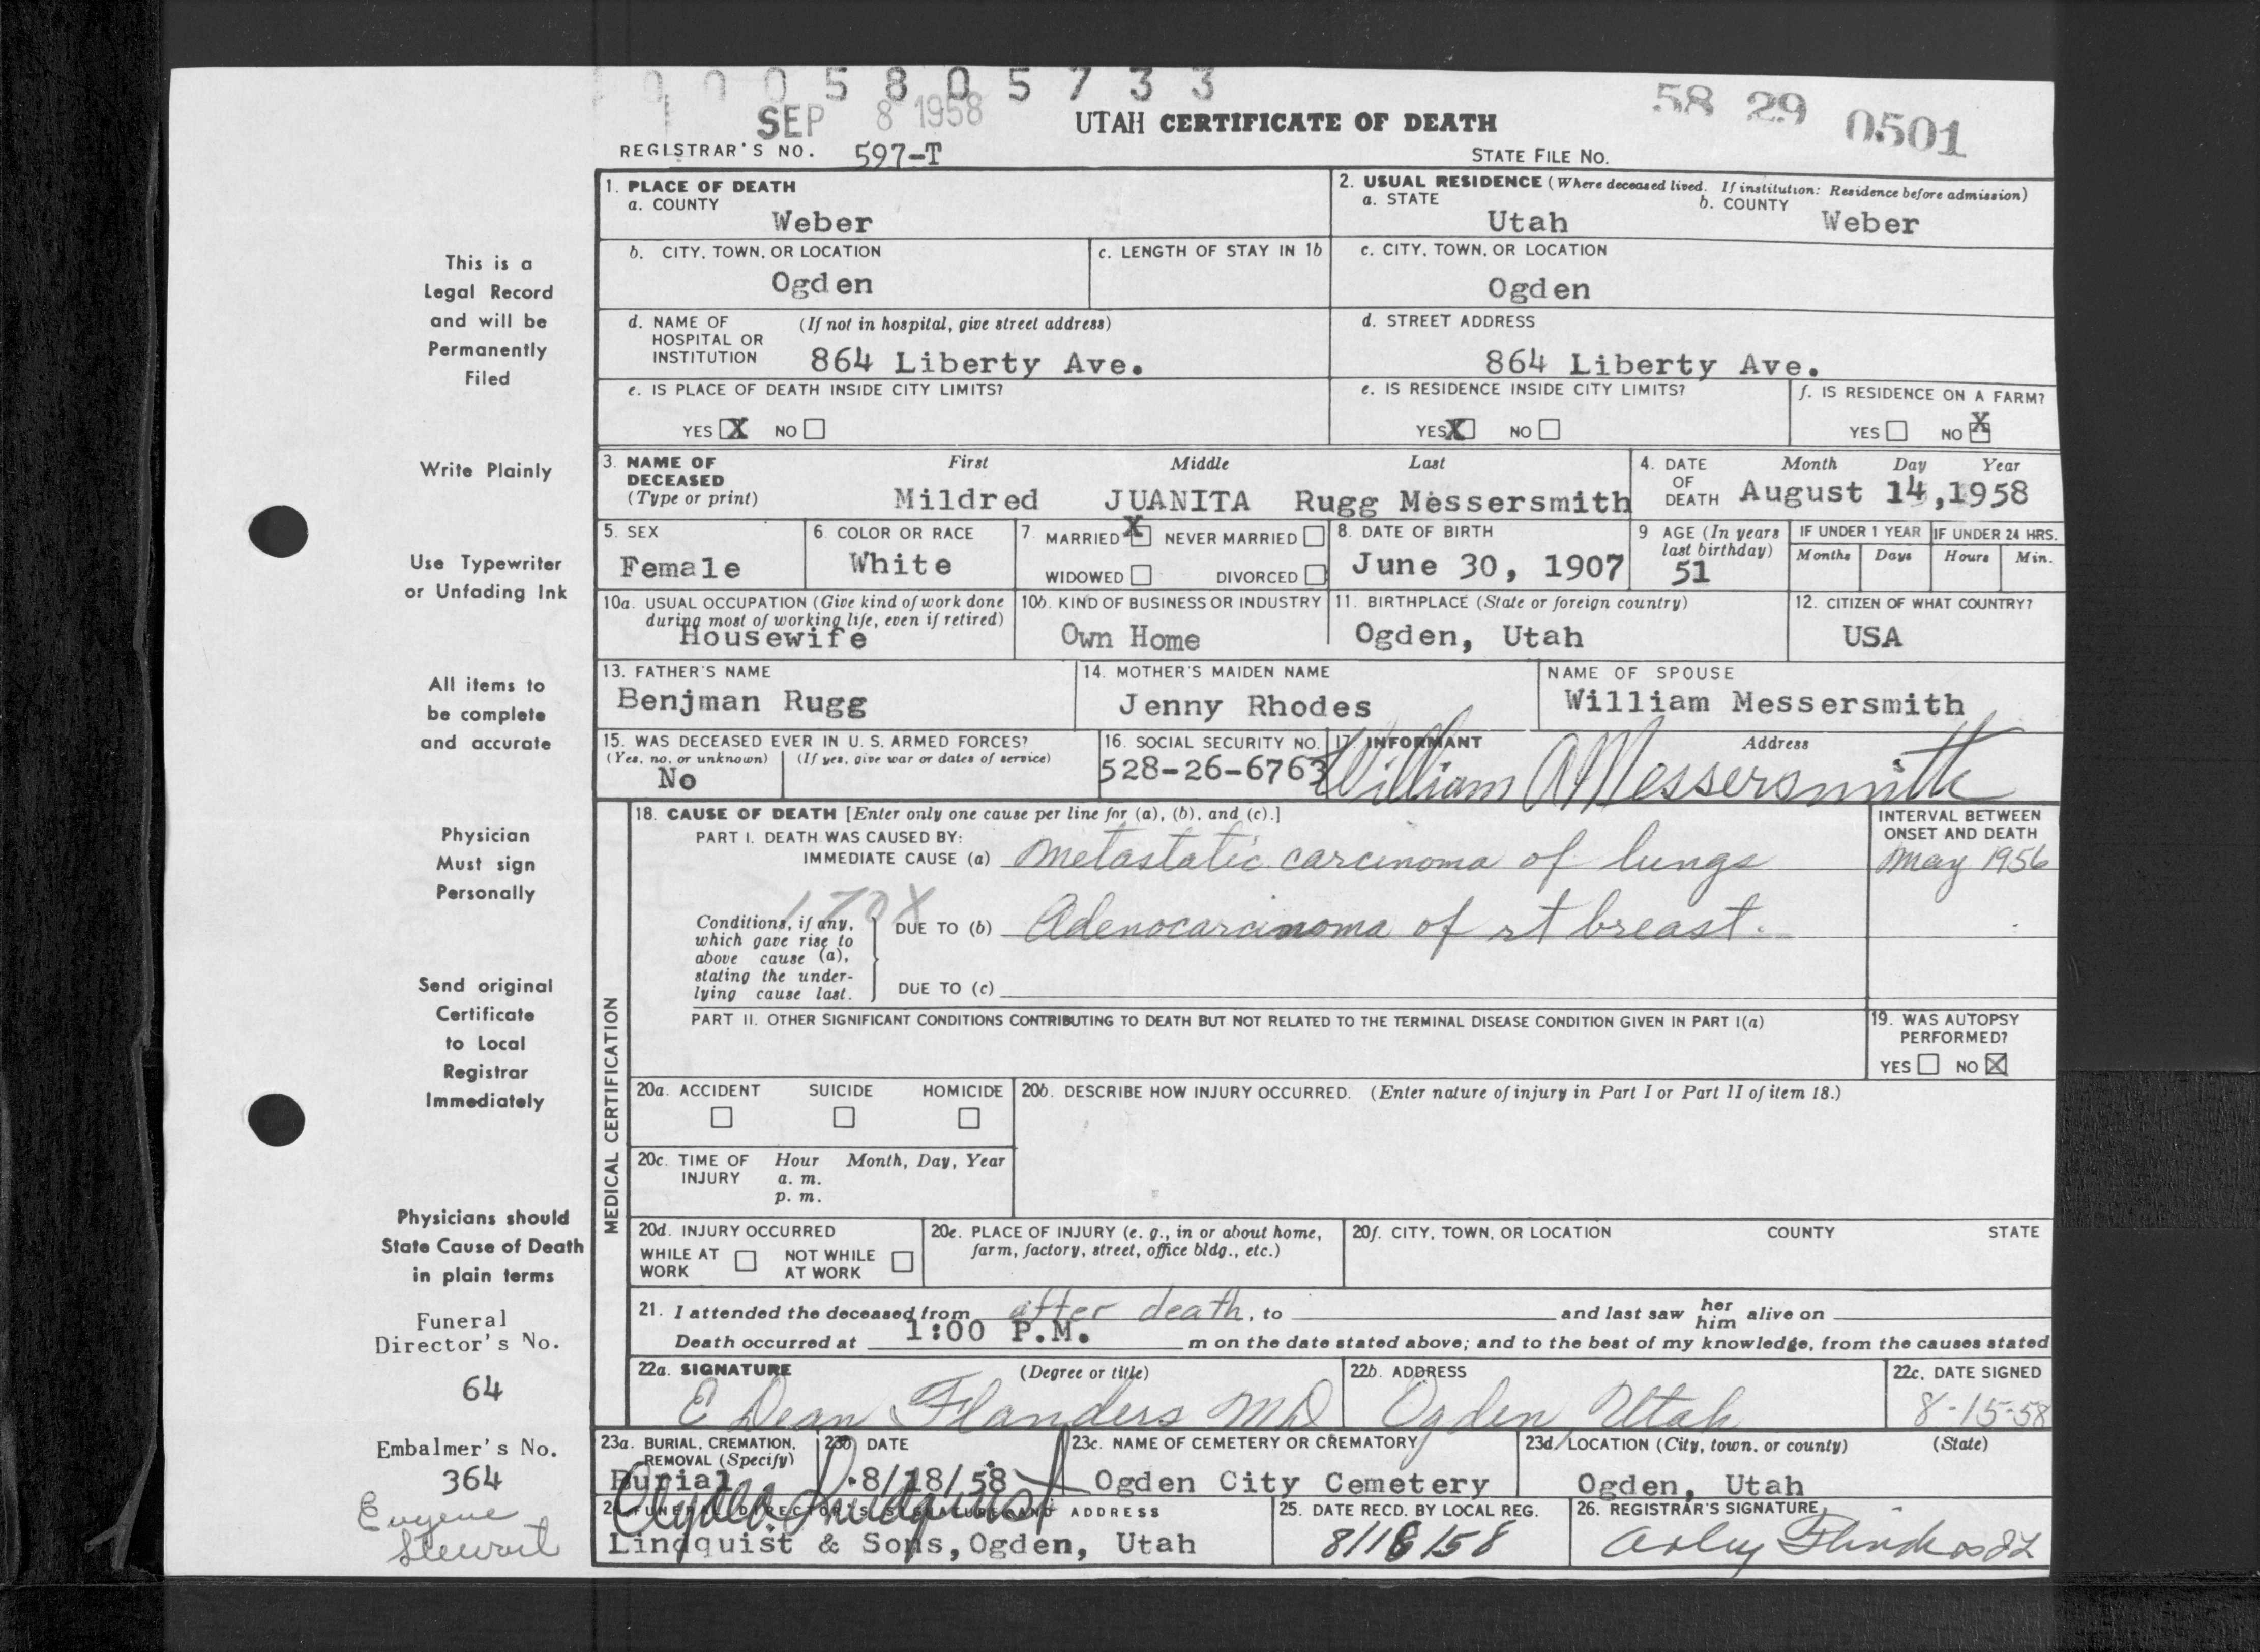 0 0 0 5 8 0 5 7 3 3
SEP 8 1958
58 29 0501
UTAH CERTIFICATE OF DEATH
REGISTRAR'S NO. 597-T
STATE FILE NO.
1. PLACE OF DEATH
a. COUNTY
Weber
2. USUAL RESIDENCE (Where deceased lived. If institution: Residence before admission)
a. STATE
Utah
b. COUNTY
Weber
b. CITY, TOWN, OR LOCATION
Ogden
c. LENGTH OF STAY IN 1b
c. CITY, TOWN, OR LOCATION
Ogden
d. NAME OF (If not in hospital, give street address)
HOSPITAL OR
INSTITUTION 864 Liberty Ave.
d. STREET ADDRESS
864 Liberty Ave.
e. IS PLACE OF DEATH INSIDE CITY LIMITS?
YES X NO
e. IS RESIDENCE INSIDE CITY LIMITS?
YES X NO
f. IS RESIDENCE ON A FARM?
YES NO X
3. NAME OF First Middle Last
DECEASED
(Type or print) Mildred JUANITA Rugg Messersmith
4. DATE Month Day Year
OF
DEATH August 14, 1958
5. SEX
Female
6. COLOR OR RACE
White
7. MARRIED X NEVER MARRIED
WIDOWED DIVORCED
8. DATE OF BIRTH
June 30, 1907
9 AGE (In years
last birthday)
51
IF UNDER 1 YEAR
Months Days
IF UNDER 24 HRS.
Hours Min.
10a. USUAL OCCUPATION (Give kind of work done
during most of working life, even if retired)
Housewife
10b. KIND OF BUSINESS OR INDUSTRY
Own Home
11. BIRTHPLACE (State or foreign country)
Ogden, Utah
12. CITIZEN OF WHAT COUNTRY?
USA
13. FATHER'S NAME
Benjman Rugg
14. MOTHER'S MAIDEN NAME
Jenny Rhodes
NAME OF SPOUSE
William Messersmith
15. WAS DECEASED EVER IN U. S. ARMED FORCES?
(Yes, no, or unknown) (If yes, give war or dates of service)
No
16. SOCIAL SECURITY NO.
528-26-6763
17 INFORMANT Address
William A Messersmith
MEDICAL CERTIFICATION
18. CAUSE OF DEATH [Enter only one cause per line for (a), (b), and (c).]
PART I. DEATH WAS CAUSED BY:
IMMEDIATE CAUSE (a) metastatic carcinoma of lungs
INTERVAL BETWEEN
ONSET AND DEATH
May 1956
170X
Conditions, if any,
which gave rise to
above cause (a),
stating the under-
lying cause last.
DUE TO (b) Adenocarcinoma of rt breast.
DUE TO (c)
PART II. OTHER SIGNIFICANT CONDITIONS CONTRIBUTING TO DEATH BUT NOT RELATED TO THE TERMINAL DISEASE CONDITION GIVEN IN PART I(a)
19. WAS AUTOPSY
PERFORMED?
YES NO X
20a. ACCIDENT SUICIDE HOMICIDE
20b. DESCRIBE HOW INJURY OCCURRED. (Enter nature of injury in Part I or Part II of item 18.)
20c. TIME OF Hour Month, Day, Year
INJURY a. m.
p. m.
20d. INJURY OCCURRED
WHILE AT NOT WHILE
WORK AT WORK
20e. PLACE OF INJURY (e. g., in or about home,
farm, factory, street, office bldg., etc.)
20f. CITY, TOWN, OR LOCATION COUNTY STATE
21. I attended the deceased from after death, to and last saw her him alive on
Death occurred at 1:00 P.M. m on the date stated above; and to the best of my knowledge, from the causes stated
22a. SIGNATURE (Degree or title)
E Dean Flanders MD
22b. ADDRESS
Ogden Utah
22c. DATE SIGNED
8-15-58
23a. BURIAL, CREMATION,
REMOVAL (Specify)
Burial
23b DATE
8/18/58
23c. NAME OF CEMETERY OR CREMATORY
Ogden City Cemetery
23d. LOCATION (City, town, or county) (State)
Ogden, Utah
24 FUNERAL DIRECTOR'S SIGNATURE AND ADDRESS
Lindquist & Sons, Ogden, Utah
25. DATE RECD. BY LOCAL REG.
8/18/58
26. REGISTRAR'S SIGNATURE
This is a
Legal Record
and will be
Permanently
Filed
Write Plainly
Use Typewriter
or Unfading Ink
All items to
be complete
and accurate
Physician
Must sign
Personally
Send original
Certificate
to Local
Registrar
Immediately
Physicians should
State Cause of Death
in plain terms
Funeral
Director's No.
64
Embalmer's No.
364
Eugene
Stewart